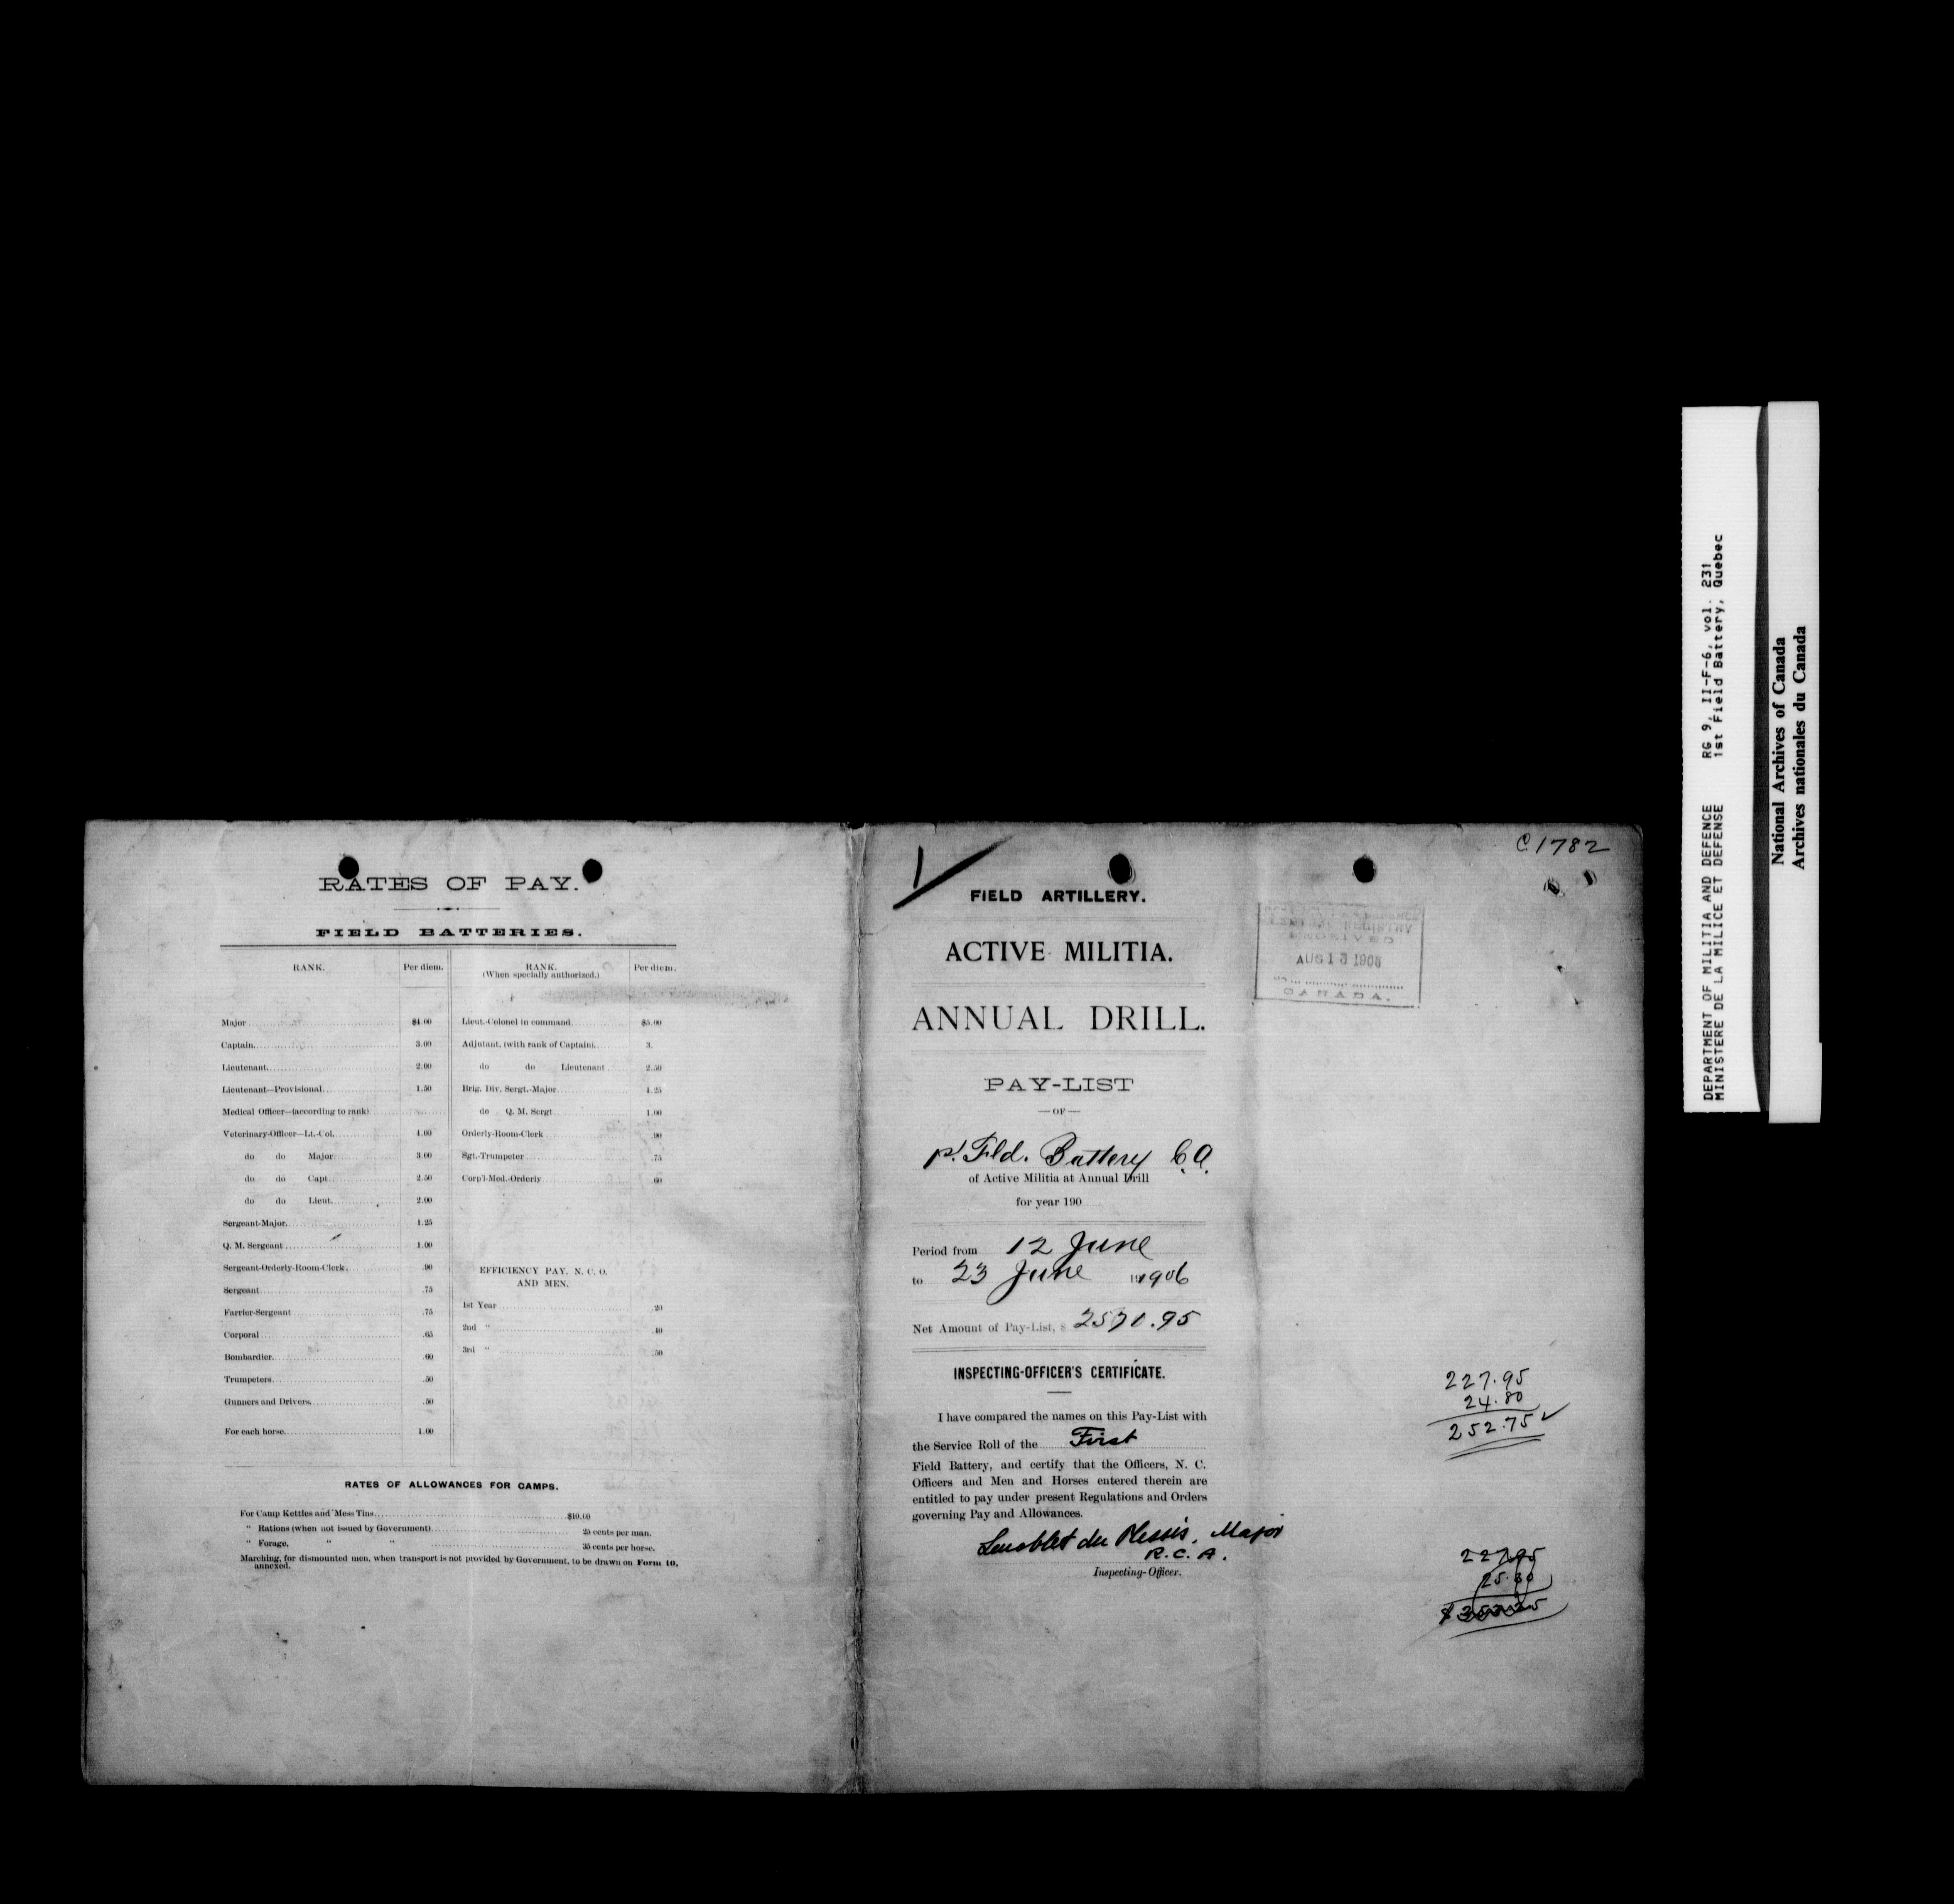 RATES OF PAY.
FIELD BATTERIES.
RANK. Per diem.
Major $4.00
Captain 3.00
Lieutenant 2.00
Lieutenant—Provisional 1.50
Medical Officer—(according to rank)
Veterinary-Officer—Lt.-Col. 4.00
do do Major 3.00
do do Capt. 2.50
do do Lieut. 2.00
Sergeant-Major 1.25
Q. M. Sergeant 1.00
Sergeant-Orderly-Room-Clerk .90
Sergeant .75
Farrier-Sergeant .75
Corporal .65
Bombardier .60
Trumpeters .50
Gunners and Drivers .50
For each horse 1.00
RANK. (When specially authorized.) Per diem.
Lieut.-Colonel in command $5.00
Adjutant, (with rank of Captain) 3.
do do Lieutenant 2.50
Brig. Div. Sergt.-Major 1.25
do Q. M. Sergt 1.00
Orderly-Room-Clerk .90
Sgt.-Trumpeter .75
Corp'l-Med.-Orderly .60
EFFICIENCY PAY, N. C. O.
AND MEN.
1st Year .20
2nd " .40
3rd " .50
RATES OF ALLOWANCES FOR CAMPS.
For Camp Kettles and Mess Tins $10.00
" Rations (when not issued by Government) 25 cents per man.
" Forage, " " 35 cents per horse.
Marching, for dismounted men, when transport is not provided by Government, to be drawn on Form 10,
annexed.
1
FIELD ARTILLERY.
ACTIVE MILITIA.
ANNUAL DRILL.
PAY-LIST
—OF—
1st Fld. Battery C.A.
of Active Militia at Annual Drill
for year 190
Period from 12 June
to 23 June 1906
Net Amount of Pay-List, $ 2571.95
INSPECTING-OFFICER'S CERTIFICATE.
I have compared the names on this Pay-List with
the Service Roll of the First
Field Battery, and certify that the Officers, N. C.
Officers and Men and Horses entered therein are
entitled to pay under present Regulations and Orders
governing Pay and Allowances.
du Plessis, Major
R.C.A.
Inspecting-Officer.
C1782
REGISTRY
RECEIVED
AUG 13 1906
CANADA.
227.95
24.80
252.75
227.95
25.30
DEPARTMENT OF MILITIA AND DEFENCE RG 9, II-F-6, vol. 231
MINISTERE DE LA MILICE ET DEFENSE 1st Field Battery, Quebec
National Archives of Canada
Archives nationales du Canada